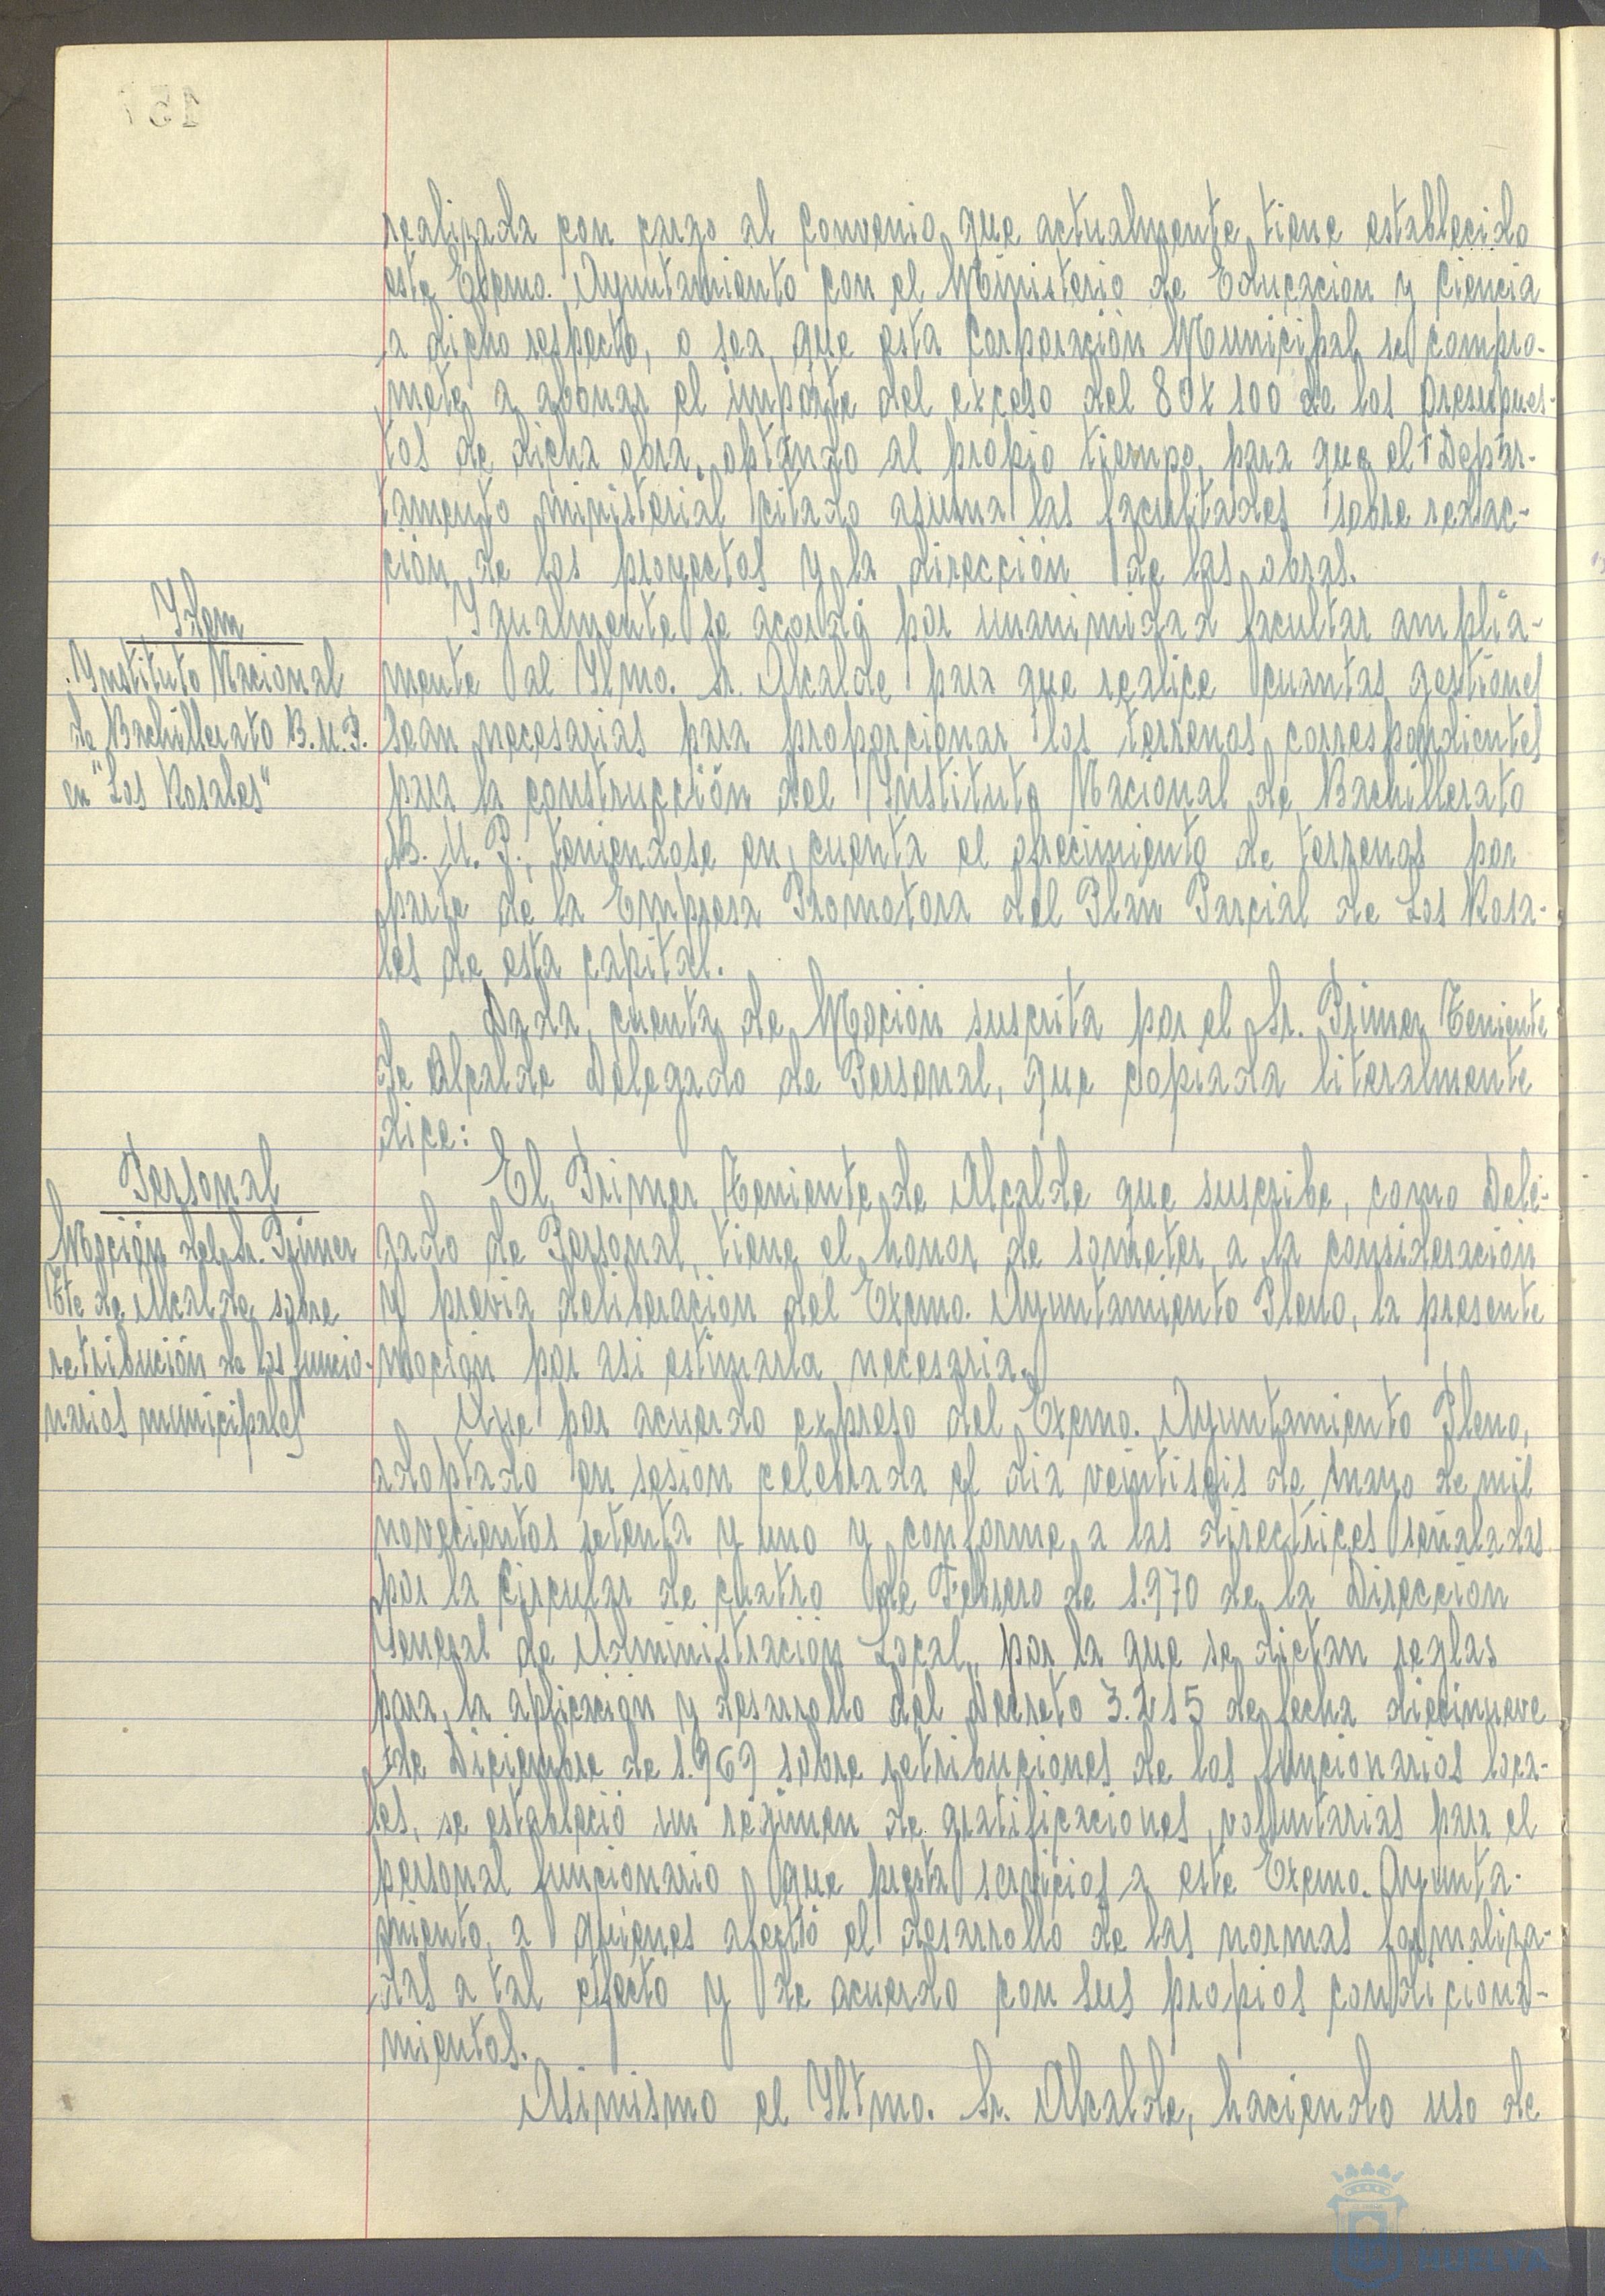 realizada con cargo al Convenio que actualmente tiene establecido
este Excmo. Ayuntamiento con el Ministerio de Educación y Ciencia
a dicho respecto, o sea, que esta Corporación Municipal se compro-
mete a abonar el importe del exceso del 80% 100 de los presupues-
tos de dicha obra, optando al propio tiempo, para que el Depar-
tamento ministerial citado asuma las facultades sobre redac-
ción de los proyectos y la dirección de las obras.
Idem
Instituto Nacional
de Bachillerato B.U.P.
en "Los Rosales"
Igualmente se acordó por unanimidad facultar amplia-
mente al Iltmo. Sr. Alcalde para que realice cuantas gestiones
sean necesarias para proporcionar los terrenos correspondientes
para la construcción del Instituto Nacional de Bachillerato
B.U.P., teniendose en cuenta el ofrecimiento de terrenos por
parte de la Empresa Promotora del Plan Parcial de Los Rosa-
les de esta capital.
Dada cuenta de Moción suscrita por el Sr. Primer Teniente
de Alcalde Delegado de Personal, que copiada literalmente
dice:
Personal
Moción del Sr. Primer
Tte de Alcalde sobre
retribución de los funcio-
narios municipales
El Primer Teniente de Alcalde que suscribe, como Dele-
gado de Personal, tiene el honor de someter a la consideración
y previa deliberación del Excmo. Ayuntamiento Pleno, la presente
moción por asi estimarla necesaria.
Que por acuerdo expreso del Excmo. Ayuntamiento Pleno,
adoptado en sesión celebrada el dia veintiseis de mayo de mil
novecientos setenta y uno y conforme a las directrices señaladas
por la Circular de cuatro de Febrero de 1.970 de la Dirección
General de Administración Local, por la que se dictan reglas
para la aplicación y desarrollo del Decreto 3.215 de fecha diecinueve
de Diciembre de 1.969 sobre retribuciones de los funcionarios loca-
les, se estableció un régimen de gratificaciones voluntarias para el
personal funcionario que presta servicios a este Excmo. Ayunta-
miento, a quienes afectó el desarrollo de las normas formaliza-
das a tal efecto y de acuerdo con sus propios condiciona-
mientos.
Asimismo el Iltmo. Sr. Alcalde, haciendo uso de
HUELVA